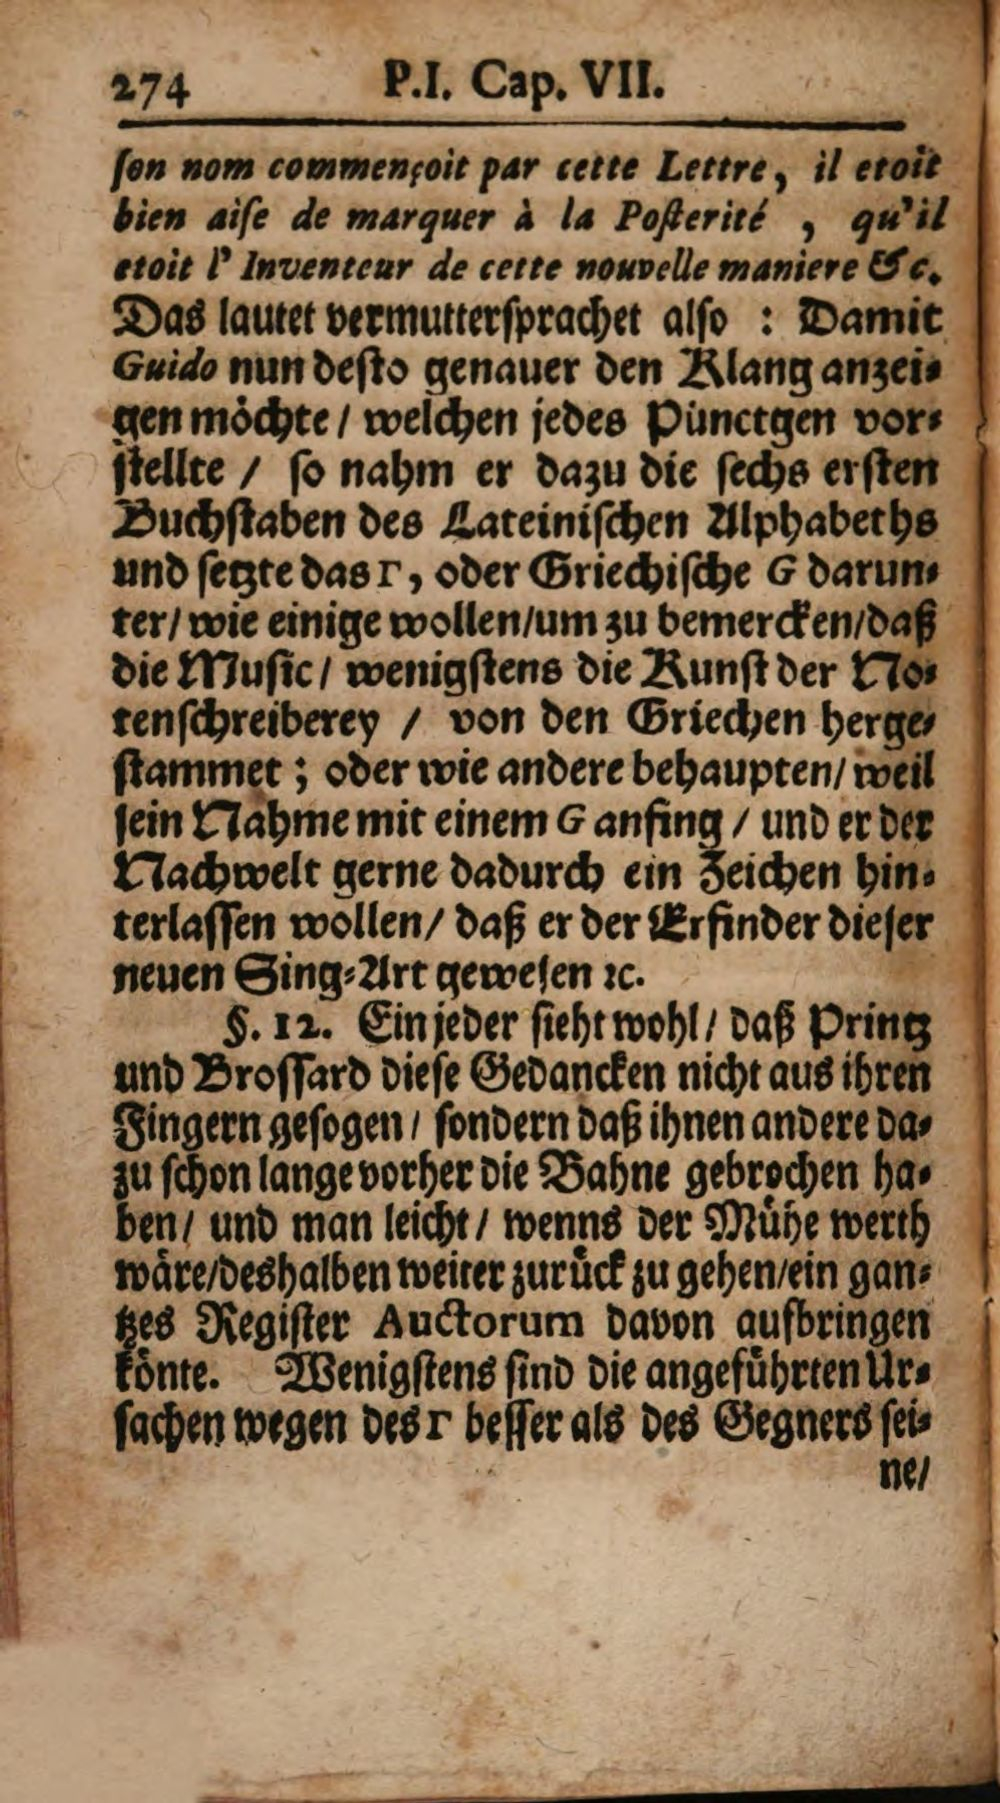 274 P.I. Cap. VII.
ſon nom commençoit par cette Lettre, il etoit
bien aiſe de marquer à la Poſterité , qu'il
etoit l' Inventeur de cette nouvelle maniere &c.
Das lautet vermutterſprachet alſo : Damit
Guido nun deſto genauer den Klang anzei⸗
gen möchte / welchen jedes Pünctgen vor⸗
ſtellte / ſo nahm er dazu die ſechs erſten
Buchſtaben des Lateiniſchen Alphabeths
und ſetzte das Γ, oder Griechiſche G darun⸗
ter/ wie einige wollen/um zu bemercken/daß
die Muſic/ wenigſtens die Kunſt der No⸗
tenſchreiberey / von den Griechen herge⸗
ſtammet ; oder wie andere behaupten/ weil
ſein Nahme mit einem G anfing / und er der
Nachwelt gerne dadurch ein Zeichen hin⸗
terlaſſen wollen/ daß er der Erfinder dieſer
neuen Sing⸗Art geweſen ꝛc.
§. 12. Ein jeder ſieht wohl/ daß Printz
und Broſſard dieſe Gedancken nicht aus ihren
Fingern geſogen/ ſondern daß ihnen andere da⸗
zu ſchon lange vorher die Bahne gebrochen ha⸗
ben/ und man leicht/ wenns der Mühe werth
wäre/deshalben weiter zurück zu gehen/ein gan⸗
tzes Regiſter Auctorum davon aufbringen
könte. Wenigſtens ſind die angeführten Ur⸗
ſachen wegen des Γ beſſer als des Gegners ſei⸗
ne/